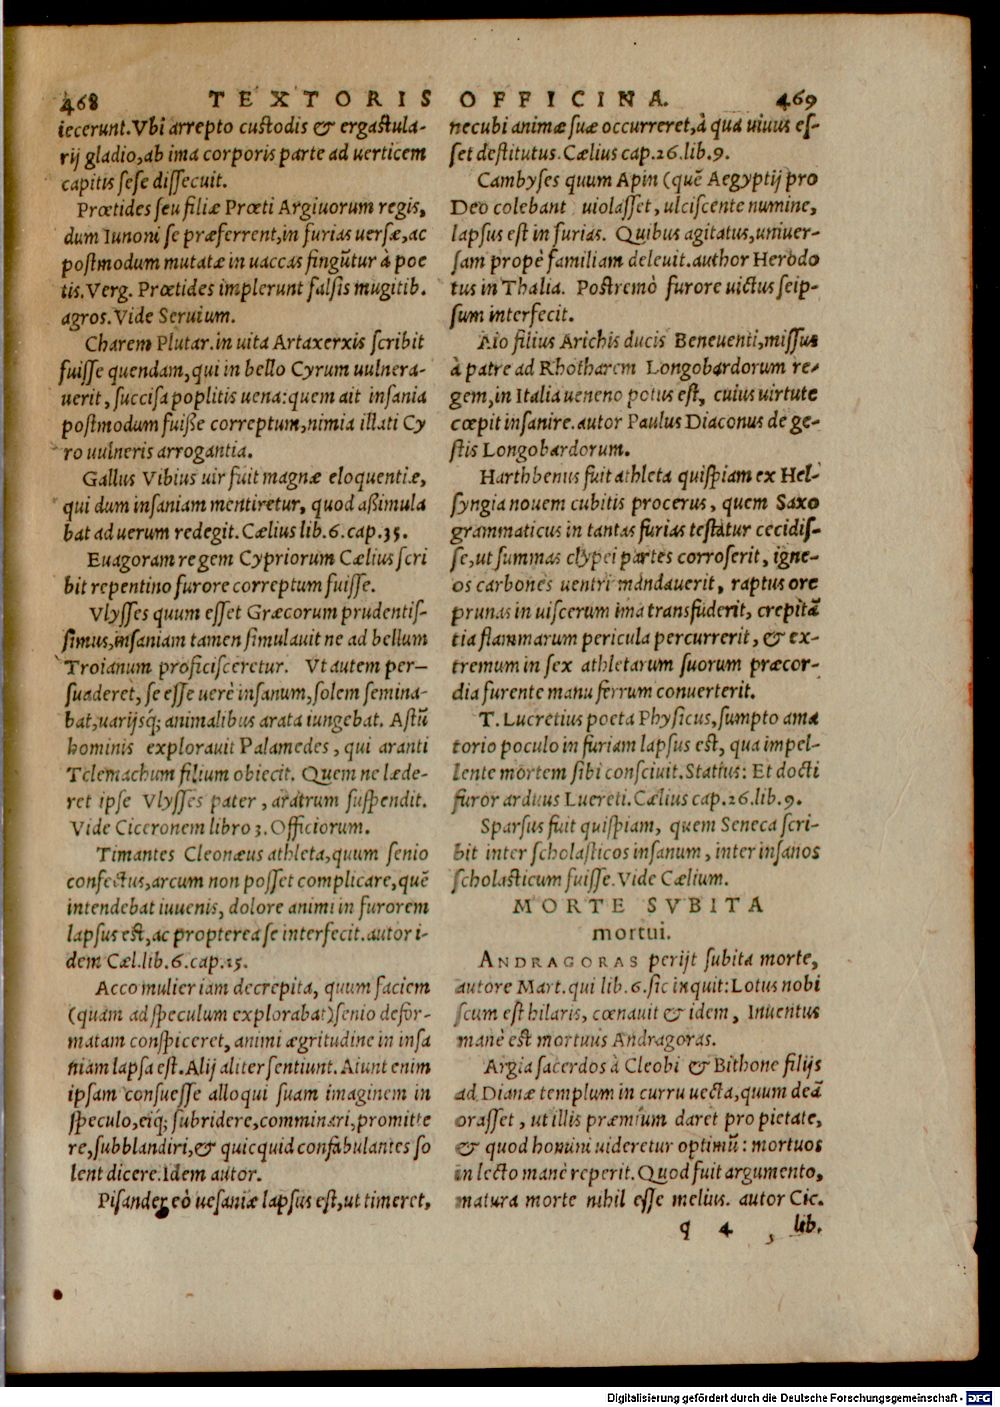 468 TEXTORIS OFFICINA. 469
iecerunt. Vbi arrepto custodis & ergastula-
rij gladio, ab ima corporis parte ad uerticem
capitis sese dissecuit.
Prœtides seu filiæ Prœti Argiuorum regis,
dum Iunoni se præferrent, in furias uersæ, ac
postmodum mutatæ in uaccas fingūtur à poe
tis. Verg. Prœtides implerunt falsis mugitib.
agros. Vide Seruium.
Charem Plutar. in uita Artaxerxis scribit
fuisse quendam, qui in bello Cyrum uulnera-
uerit, succisa poplitis uena: quem ait insania
postmodum fuisse correptum, nimia illati Cy
ro uulneris arrogantia.
Gallus Vibius uir fuit magnæ eloquentiæ,
qui dum insaniam mentiretur, quod assimula
bat ad uerum redegit. Cælius lib. 6. cap. 35.
Euagoram regem Cypriorum Cælius scri
bit repentino furore correptum fuisse.
Vlysses quum esset Græcorum prudentis-
simus, insaniam tamen simulauit ne ad bellum
Troianum proficisceretur. Vt autem per-
suaderet, se esse uerè insanum, solem semina-
bat, uarijsq; animalibus arata iungebat. Astū
hominis explorauit Palamedes, qui aranti
Telemachum filium obiecit. Quem ne læde-
ret ipse Vlysses pater, aratrum suspendit.
Vide Ciceronem libro 3. Officiorum.
Timantes Cleonæus athleta, quum senio
confectus, arcum non posset complicare, quē
intendebat iuuenis, dolore animi in furorem
lapsus est, ac propterea se interfecit. autor i-
dem Cæl. lib. 6. cap. 15.
Acco mulier iam decrepita, quum faciem
(quam ad speculum explorabat) senio defor-
matam conspiceret, animi ægritudine in insa
niam lapsa est. Alij aliter sentiunt. Aiunt enim
ipsam consuesse alloqui suam imaginem in
speculo, eiq; subridere, comminari, promitte
re, subblandiri, & quicquid confabulantes so
lent dicere. Idem autor.
Pisander eò uesaniæ lapsus est, ut timeret,
necubi animæ suæ occurreret, à qua uiuus es-
set destitutus. Cælius cap. 26. lib. 9.
Cambyses quum Apin (quē Aegyptij pro
Deo colebant uiolasset, ulciscente numine,
lapsus est in furias. Quibus agitatus, uniuer-
sam propè familiam deleuit. author Herodo
tus in Thalia. Postremò furore uictus seip-
sum interfecit.
Aio filius Arichis ducis Beneuenti, missus
à patre ad Rhotharem Longobardorum re-
gem, in Italia ueneno potus est, cuius uirtute
cœpit insanire. autor Paulus Diaconus de ge-
stis Longobardorum.
Harthbenus fuit athleta quispiam ex Hel-
syngia nouem cubitis procerus, quem Saxo
grammaticus in tantas furias testatur cecidis-
se, ut summas clypei partes corroserit, igne-
os carbones uentri mandauerit, raptus ore
prunas in uiscerum ima transfuderit, crepitā
tia flammarum pericula percurrerit, & ex-
tremum in sex athletarum suorum præcor-
dia furente manu ferrum conuerterit.
T. Lucretius poeta Physicus, sumpto ama
torio poculo in furiam lapsus est, qua impel-
lente mortem sibi consciuit. Statius: Et docti
furor arduus Lucreti. Cælius cap. 26. lib. 9.
Sparsus fuit quispiam, quem Seneca scri-
bit inter scholasticos insanum, inter insanos
scholasticum fuisse. Vide Cælium.
MORTE SVBITA
mortui.
ANDRAGORAS perijt subita morte,
autore Mart. qui lib. 6. sic inquit: Lotus nobi
scum est hilaris, cœnauit & idem, Inuentus
manè est mortuus Andragoras.
Argia sacerdos à Cleobi & Bithone filijs
ad Dianæ templum in curru uecta, quum deā
orasset, ut illis præmium daret pro pietate,
& quod homini uideretur optimū: mortuos
in lecto manè reperit. Quod fuit argumento,
matura morte nihil esse melius. autor Cic.
q 4 lib.
Digitalisierung gefördert durch die Deutsche Forschungsgemeinschaft - DFG